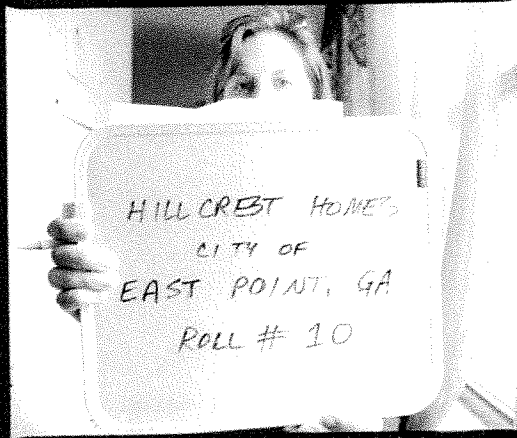 HILLCREST HOMES
CITY OF
EAST POINT, GA
ROLL # 10